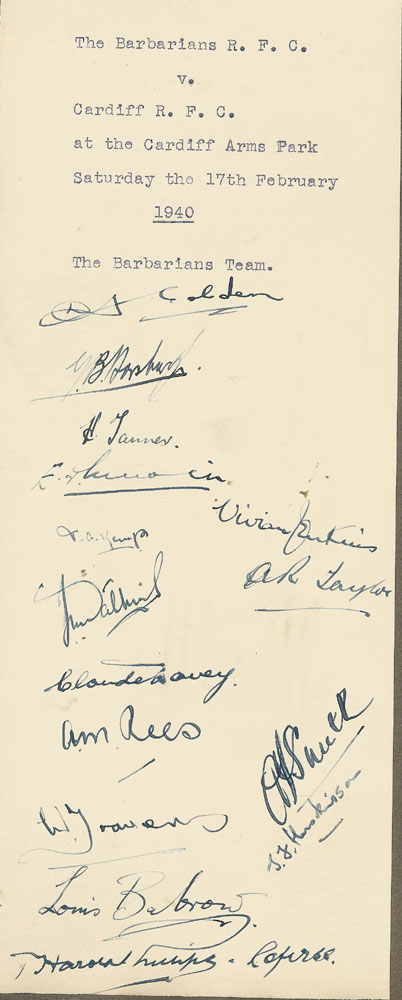 The Barbarians R. F. C.
v.
Cardiff R. F. C.
at the Cardiff Arms Park
Saturday the 17th February
1940
The Barbarians Team.
G. B. Horsburgh.
H Tanner.
Vivian Jenkins
T. A. Kemp
AR Taylor
Claude Davey.
A.M. Rees
T. F. Huskisson
Louis Babrow
Harold Phillips - Referee.